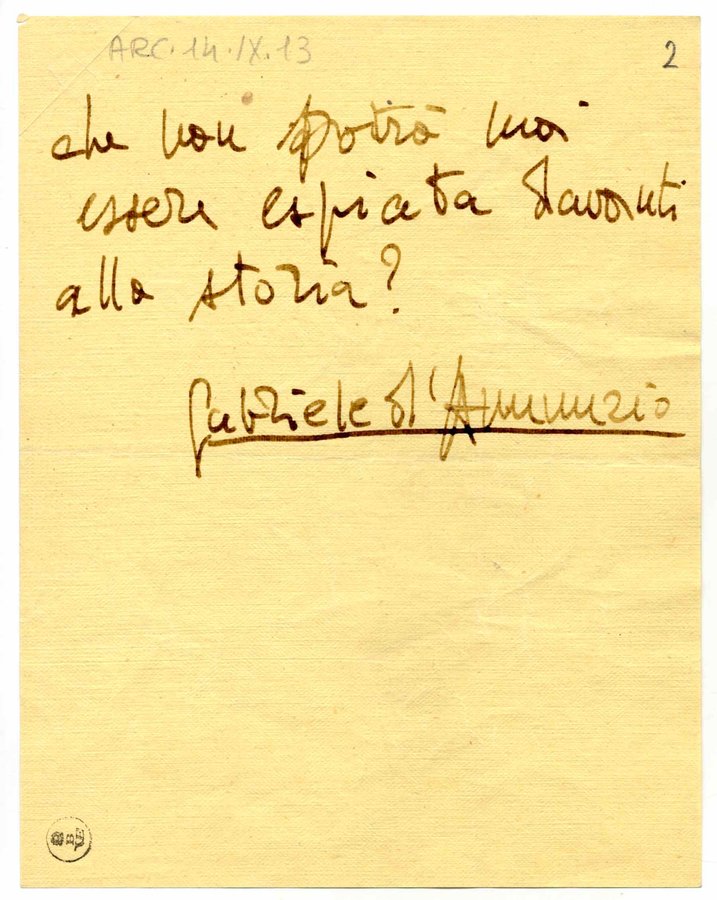 ARC. 14. IX. 13
2
che non potrà mai
essere espiata davanti
alla storia?
Gabriele d'Annunzio